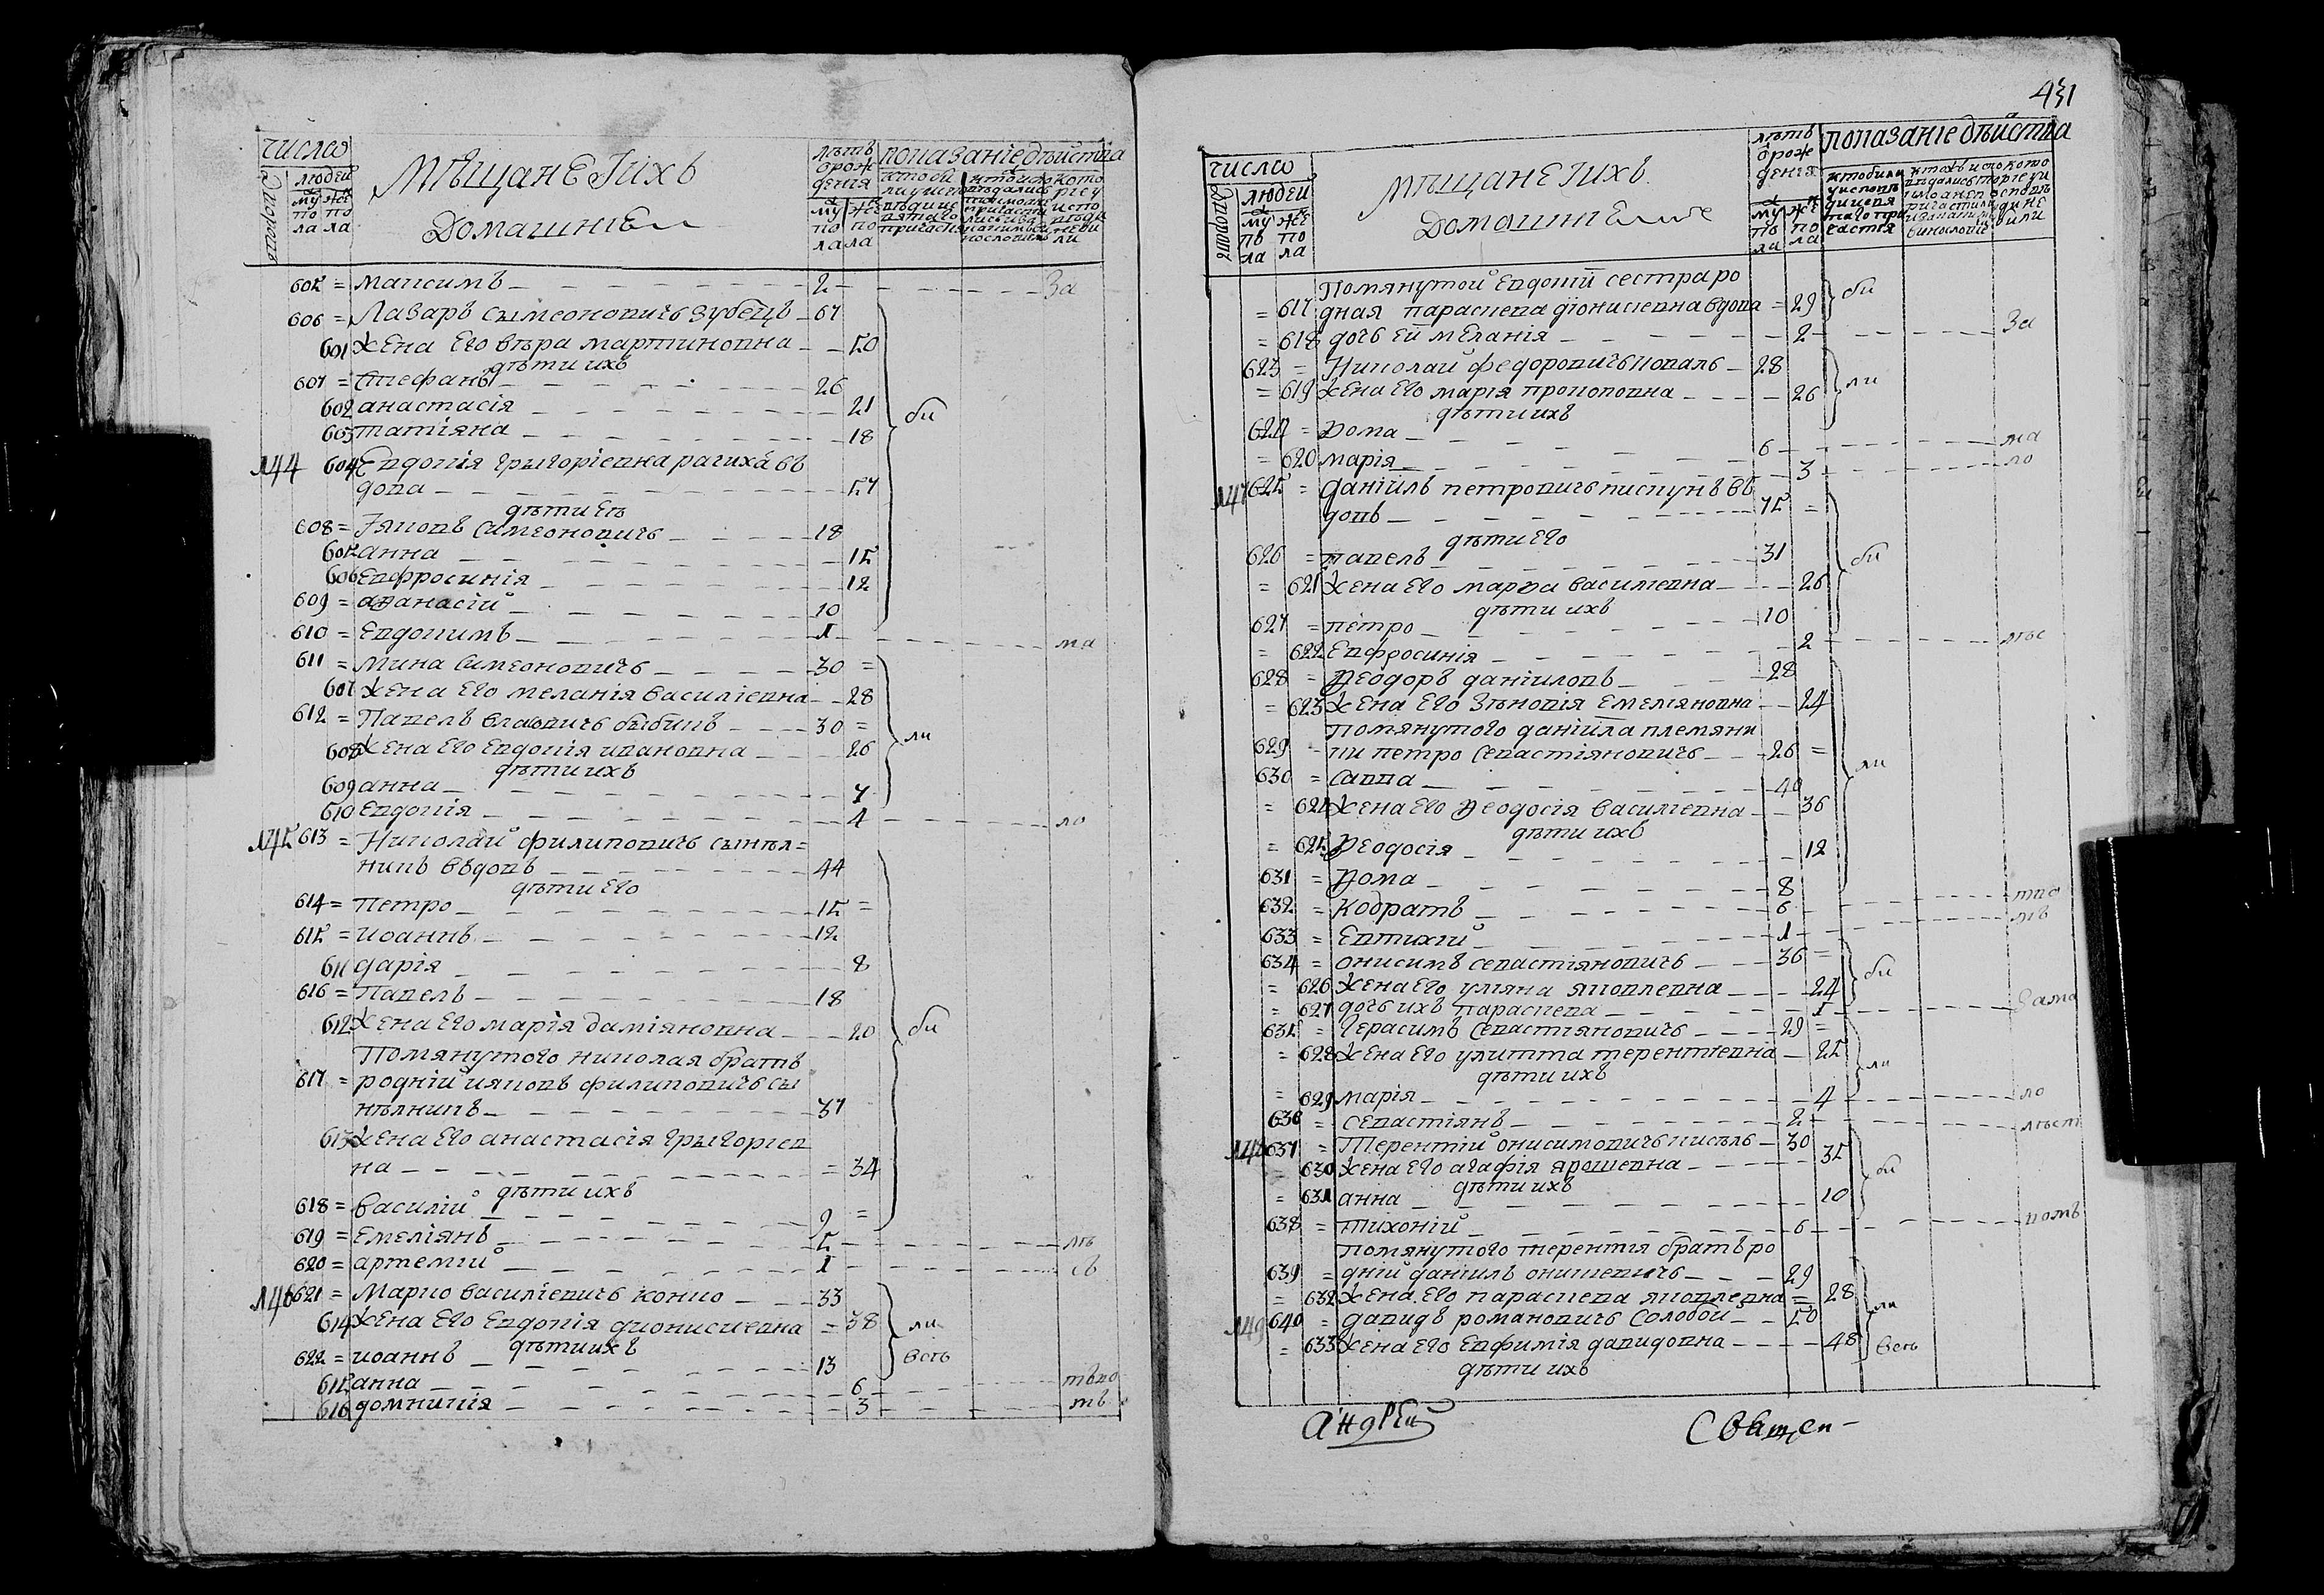 число
дворовъ
людей
му же
по по
ла ла
Мѣщане Iихъ
Домашнiе
лѣтъ
ѿрож
денiя
му же
по по
ла ла
показанiе дѣйства
605 = Максимъ 2 За
606 = Лазарь Сѵмеоновичъ Зубецъ 67
601 Жена Его вѣра мартиновна 50
дѣти ихъ
607 = Стефанъ 26
602 анастасiя 21
603 татiяна 18
би
144 604 Евдокiя григорiевна рачиха въ
дова 57
дѣти Еѣ
608 = Iяковъ Симеоновичъ 18
605 анна 15
606 Евфросинiя 12
609 = аѳанасiй 10
610 = Евдокимъ 1 ма
611 = Мина Симеоновичъ 30 =
607 Жена Его меланiя василiевна 28
612 = Павелъ власовичъ бибикъ 30 =
608 Жена Его Евдокiя ивановна 26
ли
дѣти ихъ
609 анна 7
610 Евдокiя 4 ло
145 613 = Николай филиповичъ сынѣл=
никъ въдовъ 44
дѣти Его
614 = Петро 15 =
615 = иоаннъ 12
611 дарiя 8
616 = Павелъ 18
612 Жена Его марiя дамiяновна 20
би
Помянутого николая братъ
617 = роднiй ияковъ филиповичъ сы
нѣлникъ 37
613 Жена Его анастасiя григорiев
на = 34
дѣти ихъ
618 = Василiй 9 =
619 = Емелiянъ 5 лѣ
620 = артемiй 1 съ
146 621 = Марко василiевичъ конко 33
614 Жена Его Евдокiя дионисиевна = 38
ли
дѣти ихъ
622 = иоаннъ 13
всѣ
615 анна 6
616 домникiя 3 тъ
431
число
дворовъ
людей
му же
по по
ла ла
мѣщане Iихъ
Домашнiе
лѣтъ
ѿрож
денiя
му же
по по
ла ла
показанiе дѣйства
Помянутой Евдокiй сестра ро
= 617 дная параскева дiонисiевна вдова = 29
би
= 618 дочь Ей меланiя 2 За
623 = Николай федоровичъ коваль 28
= 619 Жена Его марiя прокоповна 26
ли
дѣти ихъ
624 = Ѳома 6 ма
= 620 марiя 3 ло
147 625 = данiйлъ петровичъ пискунъ въ
довъ 75 =
дѣти Его
626 = павелъ 31
би
= 621 Жена Его марѳа василевна 26
дѣти ихъ
627 = петро 10
= 622 Евфросинiя 2
628 = Ѳеодоръ данiиловъ 28
= 623 Жена Его Зѣновiя Емелiяновна 24
помянутого данiйла племяни
629 = ки петро Севастiяновичъ 26 =
630 = Савва 40
ли
= 624 Жена Его Ѳеодосiя василiевна 36
дѣти ихъ
= 625 Ѳеодосiя 12
631 = Ѳома 8
632 = Кодратъ 6
633 = Евтихiй 1
634 = онисимъ севастiяновичъ 36 =
= 626 Жена Его улiяна яковлевна 24
би
= 627 дочь ихъ параскева 1
635 = Герасимъ Севастiяновичъ 29 =
= 628 Жена Его улитта терентiевна 25
ли
дѣти ихъ
= 629 марiя 4 ло
636 = севастiянъ 2
148 637 = Терентiй онисимовичъ кисѣль 30
630 Жена Его агафiя ярошевна 35
дѣти ихъ
= 631 анна 10
би
638 = тихонiй 6
помянутого терентiя братъ ро
639 = днiй данiилъ онишевичъ 29
= 632 Жена Его параскева яковлевна = 28
ли
149 640 = давидъ романовичъ Солобой 50
= 633 Жена Его Евфимiя давидовна 48
всѣ
дѣти ихъ
Андрей Священ